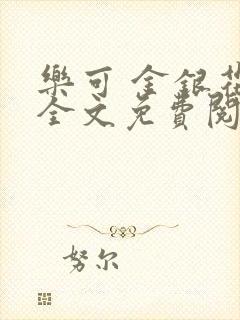 樂可 金銀花
全文免費閱
努尔